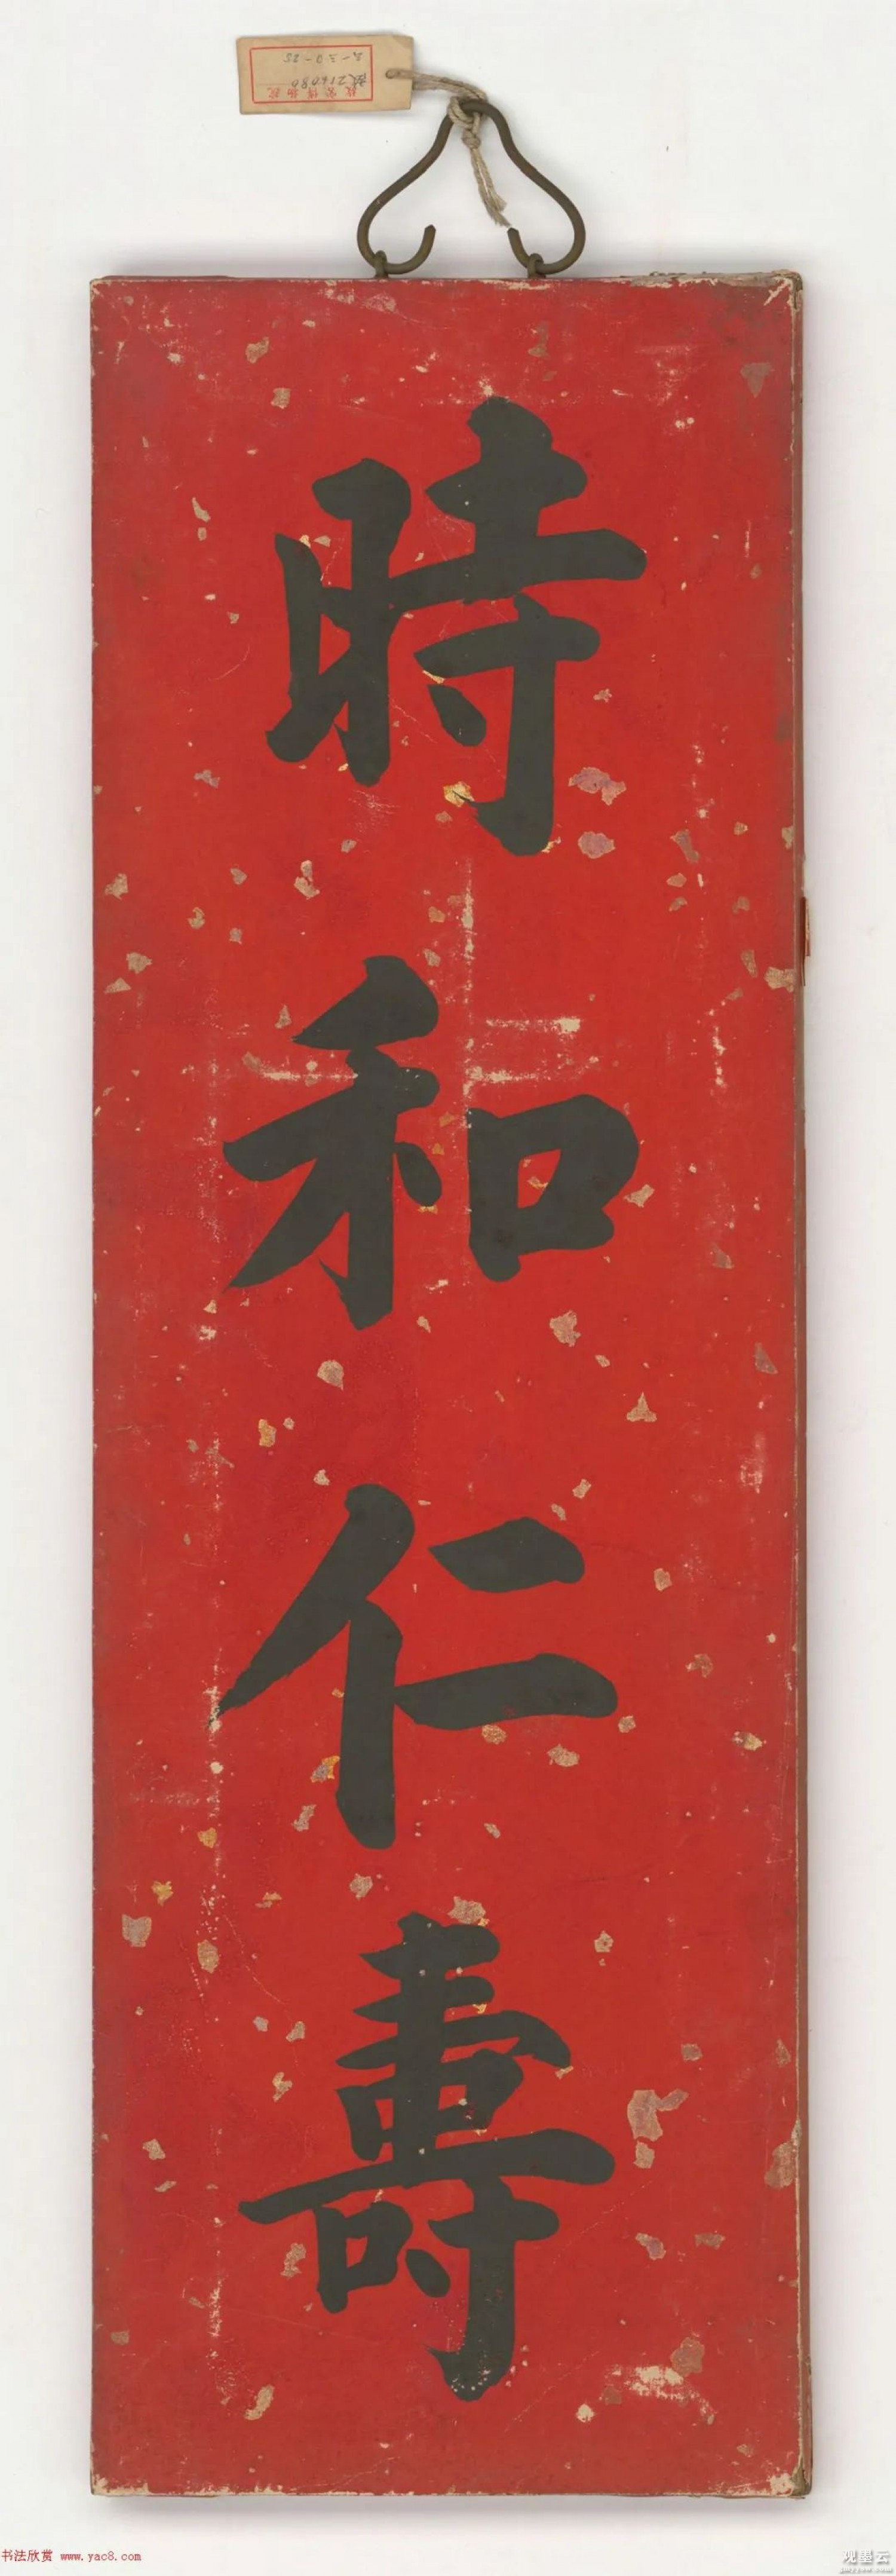 故宮博物院
故216080
時和仁壽
书法欣赏 www.yac8.com
观墨云